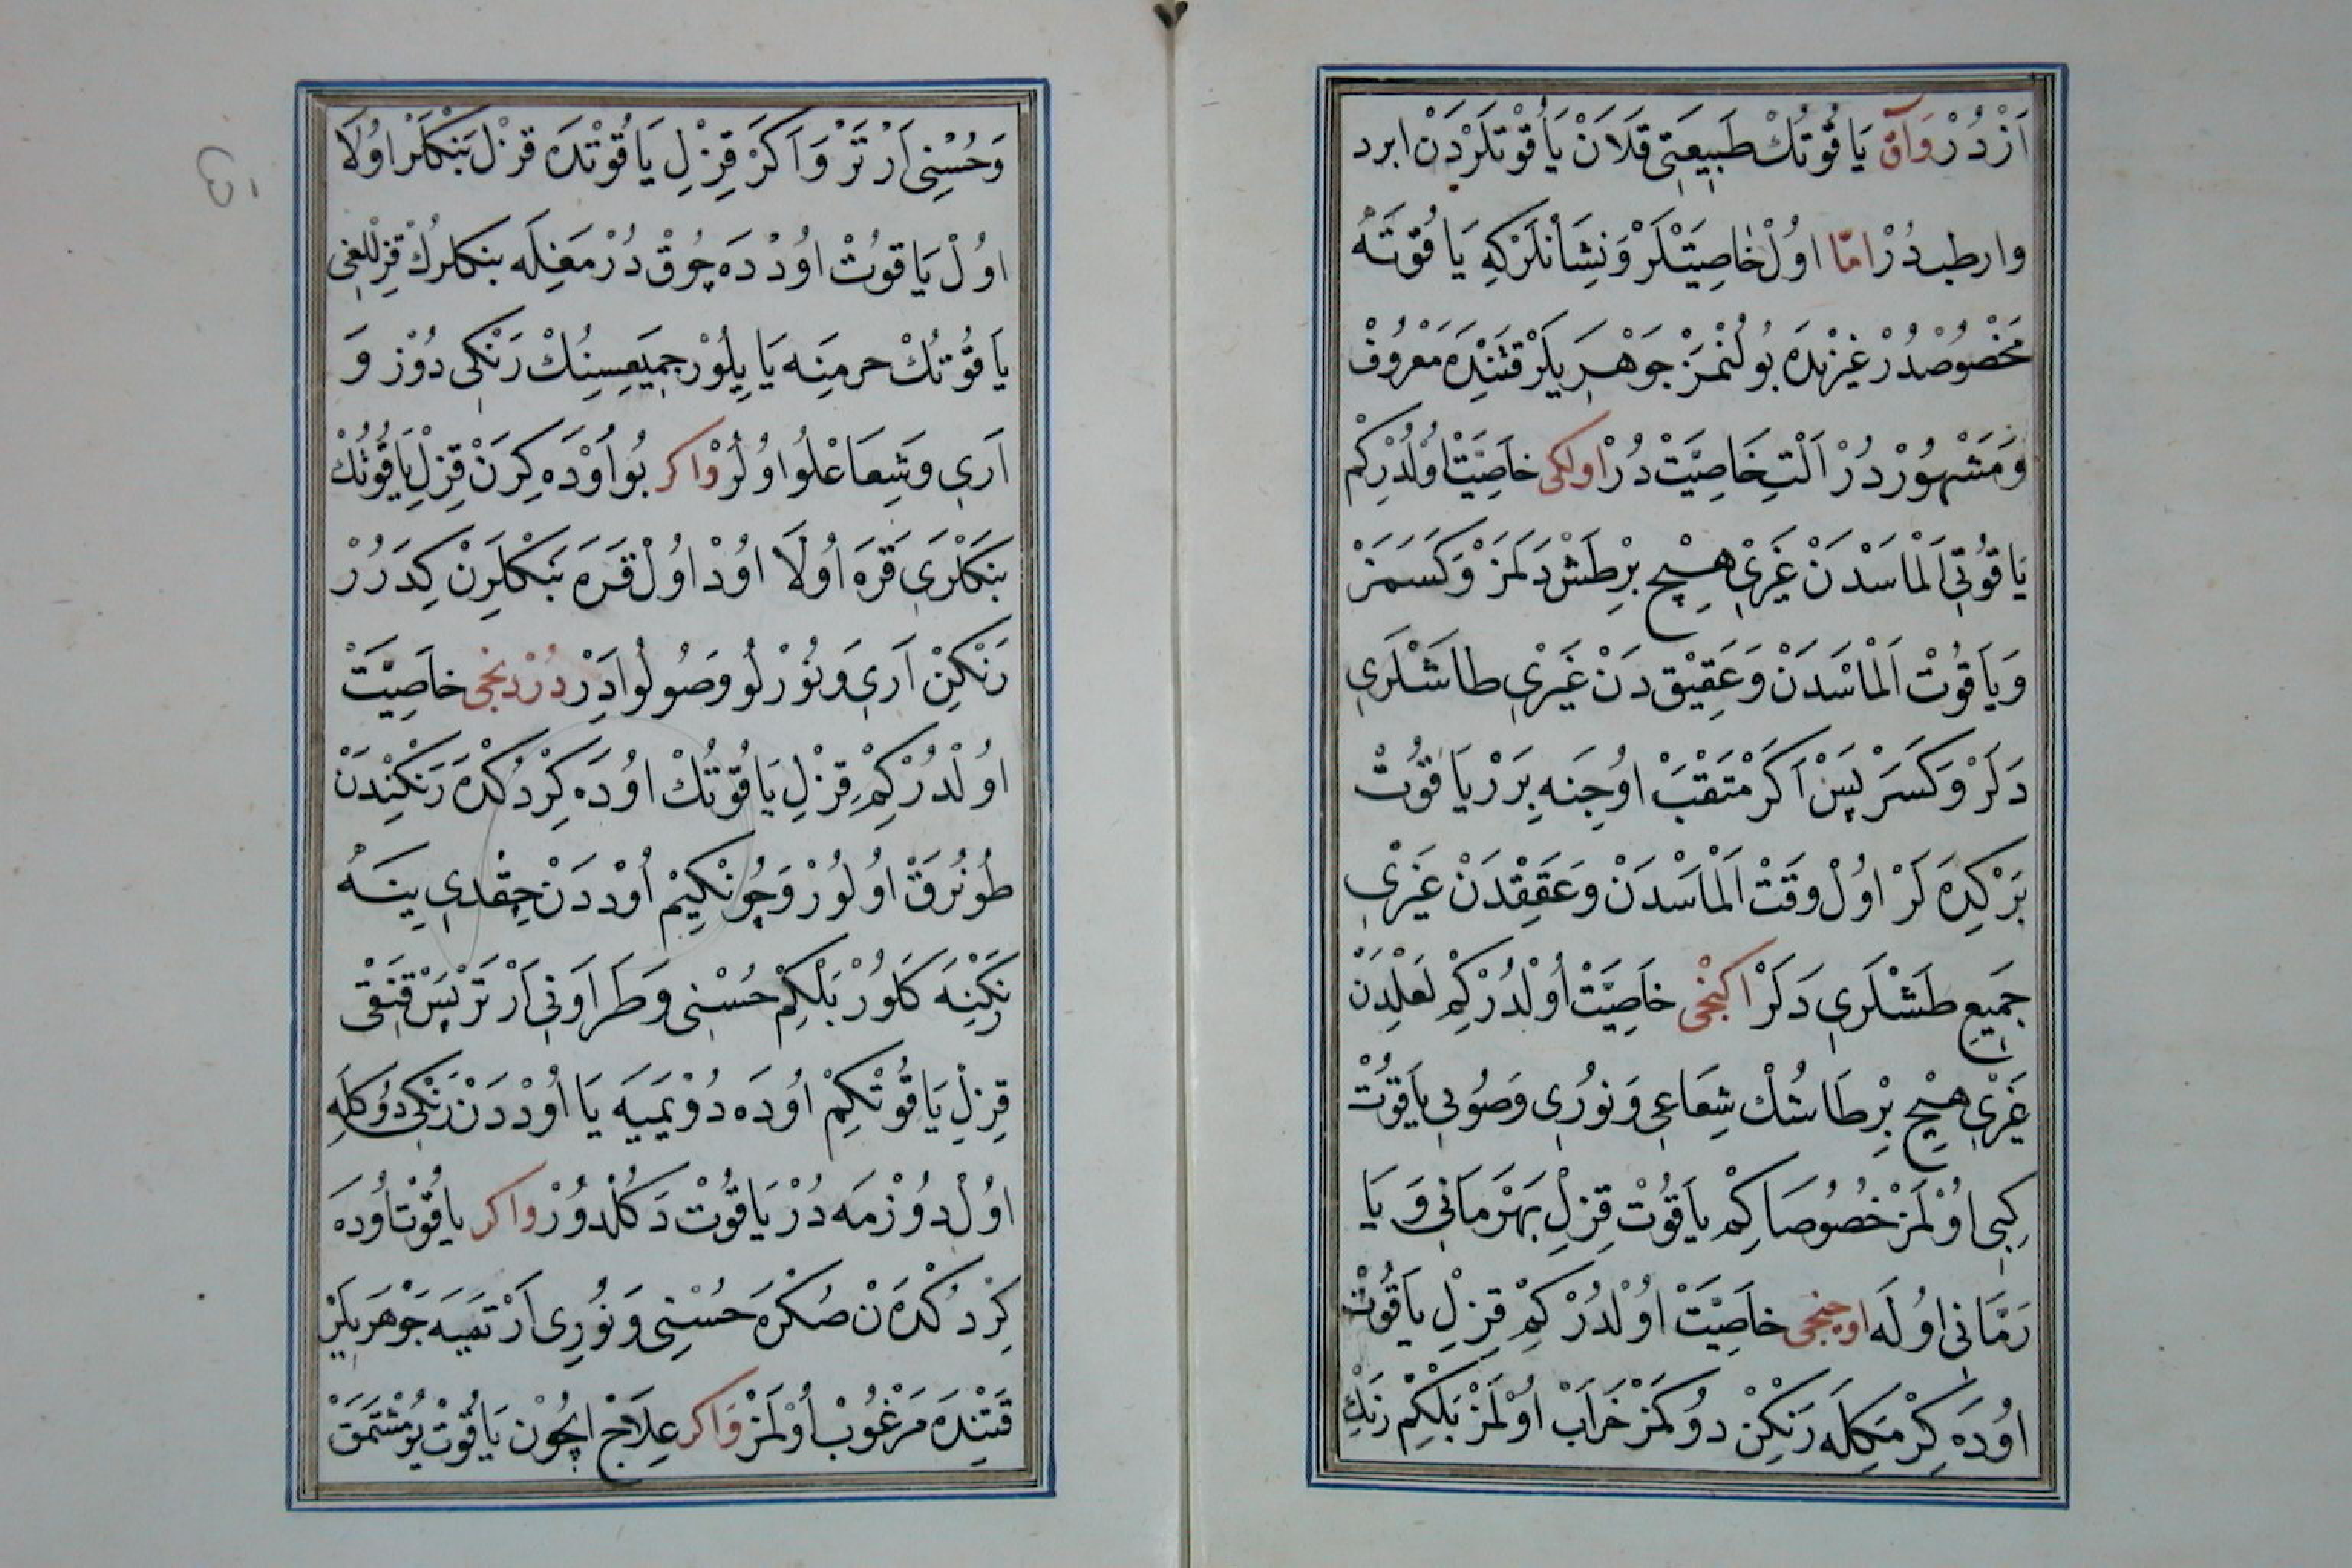 اَزْدُرْ وَآقْ يَا قُوتُكْ طَبِيعَتِي قَلَانْ يَاقُوْتلَرْدَنْ ابرد
وارطبدُرْ امّا اوُلْ خَاصِيَتْلَرْ وَنِشَانْلَرْكِه يَا قُوتَهْ
مَخْصُوصْدُرْ غَيْرْنِدَه بُولُنْمَزْ جَوْهَرِيلَرْ قَتِنْدَه مَعْرُوفْ
وَمَشْهُورْدُرْ اَلْتِ خَاصِيَّتْ دُرْ اولكى خَاصِيَّتْ اوُلْدُرْكِمْ
يَا قُوتِي اَلْمَاسْدَنْ غَيْرِي هِيچْ بِرْ طَشْ دَلَمَزْ وَكَسَمَزْ
وَيَا قُوتْ اَلْمَاسْدَنْ وَعَقِيقْ دَنْ غَيْرِي طاشْلَرِي
دَلَرْ وَكَسَرْ پَسْ اَكَرْ مَتْقَبْ اوُجِنَه بِرَرْ يَا قُوتْ
بَرْكِدَه لَرْ اوُلْ وَقَتْ اَلْمَاسْدَنْ وَعَقِقْدَنْ غَيْرِي
جَمِيعِ طَشْلَرِي دَلَرْ اكنجى خَاصِيَّتْ اوُلْدُرْكِمْ لَعْلِدَنْ
غَيْرِي هِيچْ بِرْ طَاشُكْ شِعَاعِي وَنُورِي وَصُوبِي يَاقُوتْ
كِبِي اوُلْمَزْ خُصُوصَا كِمْ يَاقُوتْ قِزِلِ بَهْرَمَانِي وَ يَا
رَمَّانِي اوُلَه اوچنجى خَاصِيَّتْ اوُلْدُرْ كِمْ قِزِلِ يَاقُوتْ
اوُدَه كِرْمَكِلَه رَنْكِنْ دوُكْمَزْ خَرَابْ اوُلْمَزْ بَلْكِمْ رَنْكِ
وَحُسْنِي اَرْتَرْ وَاَكَرْ قِزِلِ يَاقُوتْدَه قزل بَنْكلَرْ اوُلَا
اوُلْ يَا قوُتْ اوُدْدَه چُوقْ دُرْمَغِلَه بنكلرُكْ قِزِلْلغِي
يَا قُوتُكْ جرمِنَه يَايِلُوْر جَمِيعِسِنُكْ رَنْكِي دُوْز وَ
اَرِي وَشِعَاعْلُو اوُلُرْ واكر بُو اوُدَه كِرَنْ قِزِلِ يَاقُوتُكْ
بَنكلَرِي قَرَه اوُلَا اوُدْ اوُلْ قَرَه بَنكلَرِنْ كِدَرُرْ
رَنْكِنْ اَرِي وَنُورْلُو وَصُولُو ادَرْ دُرْدنجى خَاصِيَّتْ
اوُلْدُرْ كِمْ قِزِلِ يَا قُوتُكْ اوُدَه كِرْدُكْدَه رَنكِنْدَنْ
طُونُرَقْ اوُلُورْ وَچُونْكِيمْ اوُدْدَنْ چِقْدِي يِنَهْ
رَنكِنَه كَلُورْ بَلْكِمْ حُسْنِي وَطَرَاوَتِي اَرْتَرْ پَسْ قَنْقِي
قِزِلِ يَا قُوتْكِمْ اوُدَه دُوْيَمِيَه يَا اوُدْدَنْ رَنْكِي دُوكُلَه
اوُلْ دوُزْمَه دُرْ يَاقُوتْ دَكُلْدُوْرْ واكر يَاقُوتْ اوُدَه
كِرْدُكْدَه نْ صُكْرَه حُسْنِي وَنُورِي اَرْتمَيَه جَوْهَرِيلَرْ
قَتِنْدَه مَرْغُوبْ اوُلْمَزْ وَاكر عِلَاجْ اچُونْ يَاقُوتْ يُومْشَتمَقْ